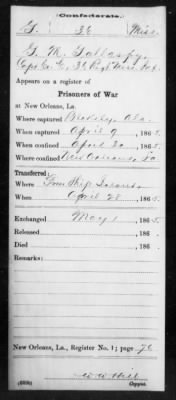 Confederate.
G. 36 Miss.
G. M. Gallaspy
Capt Co. G., 36 Regt Miss. Inf.
Appears on a register of
Prisoners of War
at New Orleans, La.
Where captured Blakely, Ala.
When captured April 9, 1865.
When confined April 20, 1865.
Where confined New Orleans, La.
Transferred:
Where From Ship Island.
When April 28, 1865.
Exchanged May 1, 1865.
Released , 186 .
Died , 186 .
Remarks:
New Orleans, La., Register No. 1; page 76
Copyist.